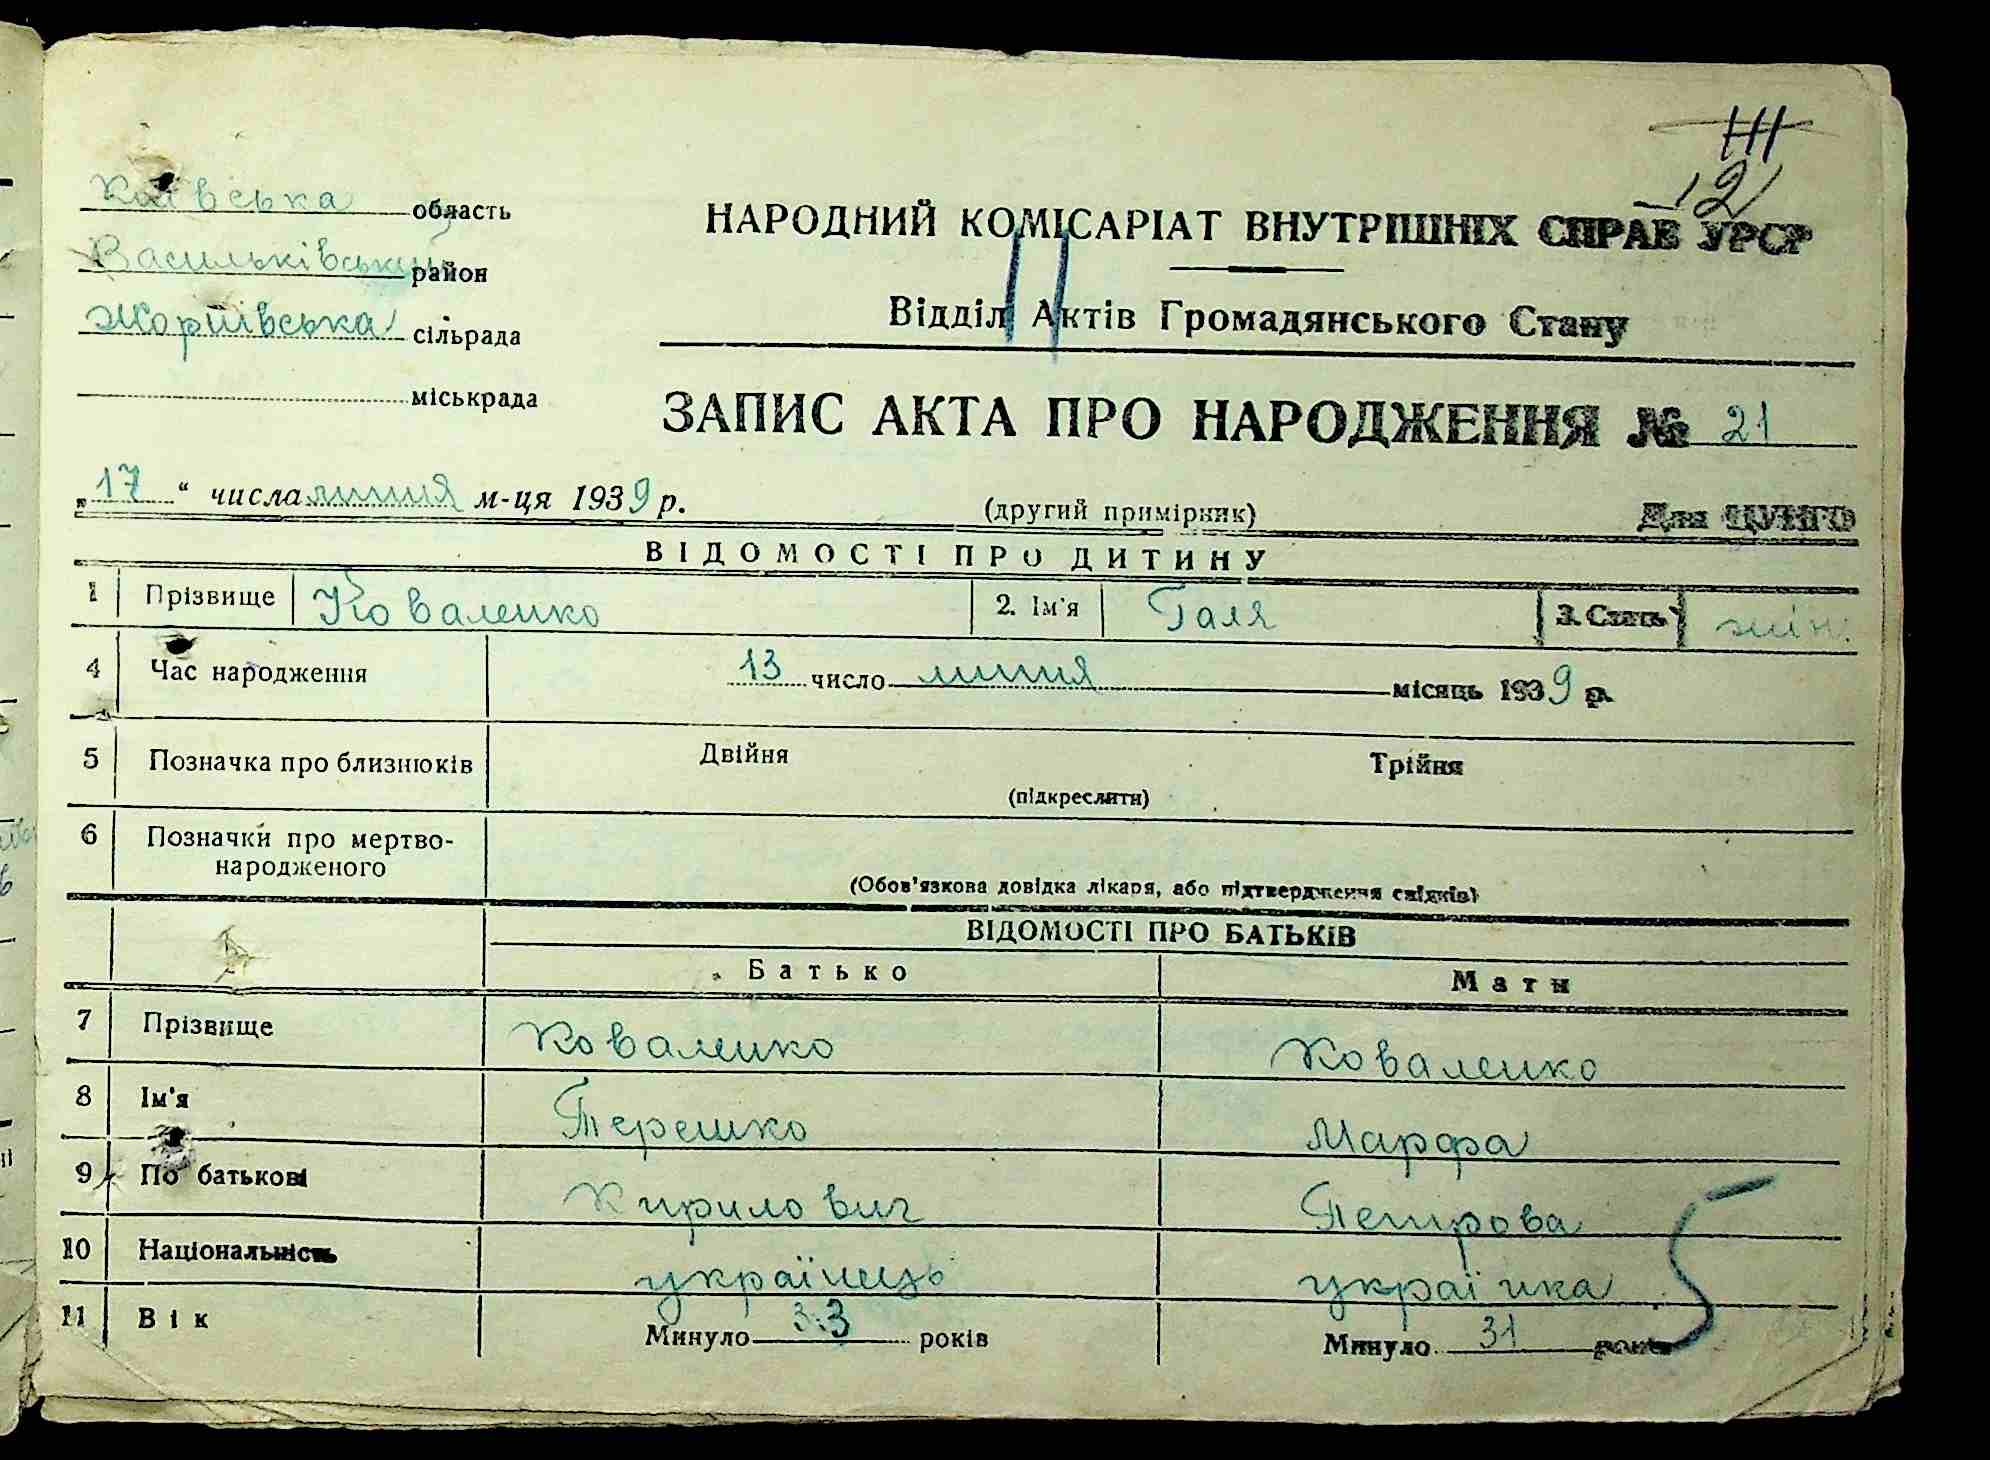 12
Київська область
Васильківський район
Жорнівська сільрада
міськрада
НАРОДНИЙ КОМІСАРІАТ ВНУТРІШНІХ СПРАВ УРСР
Відділ Актів Громадянського Стану
ЗАПИС АКТА ПРО НАРОДЖЕННЯ № 21
„17“ числа липня м-ця 1939 р. (другий примірник) Для ЦУНГО
ВІДОМОСТІ ПРО ДИТИНУ
1 Прізвище Коваленко 2. Ім'я Галя 3. Стать жін.
4 Час народження 13 число липня місяць 1939 р.
5 Позначка про близнюків Двійня Трійня
(підкреслити)
6 Позначки про мертво-
народженого
(Обов'язкова довідка лікаря, або підтвердження свідків)
ВІДОМОСТІ ПРО БАТЬКІВ
Батько Мати
7 Прізвище Коваленко Коваленко
8 Ім'я Терешко Марфа
9 По батькові Кирилович Петрова
10 Національність українець українка
11 Вік Минуло 33 років Минуло 31 років
5